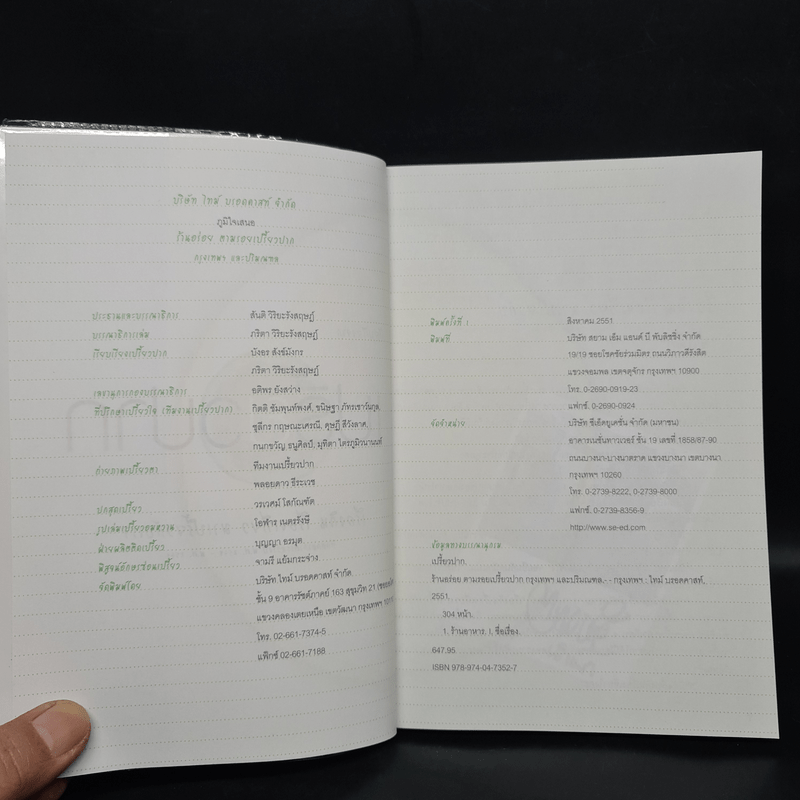 บริษัท ไทม์ บรอดคาสท์ จำกัด
ภูมิใจเสนอ
ร้านอร่อย ตามรอยเปรี้ยวปาก
กรุงเทพฯ และปริมณฑล
ประธานกองบรรณาธิการ สันติ วิริยะรังสฤษฎ์
บรรณาธิการเล่ม ภริตา วิริยะรังสฤษฎ์
เรียบเรียงเปรี้ยวปาก บังอร สังข์มังกร
ภริตา วิริยะรังสฤษฎ์
เลขานุการกองบรรณาธิการ อติพร อังสว่าง
ที่ปรึกษาเปรี้ยวใจ (ทีมงานเปรี้ยวปาก) กิตติ ชัมพุนท์พงศ์, ชนิษฐา ภัทรเชาว์นกุล,
ชุลีกร กฤษณะเศรณี, ดุษฎี สีวังลาศ,
กนกขวัญ ธนูศิลป์, มุทิตา ไตรภูมิวนานนท์
ถ่ายภาพเปรี้ยวตา ทีมงานเปรี้ยวปาก
พลอยดาว ธีระเวช
ปกสุดเปรี้ยว วรเวศม์ โสภัณฑัต
รูปเล่มเปรี้ยวอมหวาน โอฬาร เนตรรังษี
ฝ่ายผลิตติดเปรี้ยว บุญญา อรมุต
พิสูจน์อักษรซ่อนเปรี้ยว จามรี แย้มกระจ่าง
จัดพิมพ์โดย บริษัท ไทม์ บรอดคาสท์ จำกัด
ชั้น 9 อาคารรัชต์ภาคย์ 163 สุขุมวิท 21
แขวงคลองเตยเหนือ เขตวัฒนา กรุงเทพฯ
โทร. 02-661-7374-5
แฟ็กซ์ 02-661-7188
พิมพ์ครั้งที่ 1 สิงหาคม 2551
พิมพ์ที่ บริษัท สยาม เอ็ม แอนด์ บี พับลิชชิ่ง จำกัด
19/19 ซอยโชคชัยร่วมมิตร ถนนวิภาวดีรังสิต
แขวงจอมพล เขตจตุจักร กรุงเทพฯ 10900
โทร. 0-2690-0919-23
แฟกซ์. 0-2690-0924
จัดจำหน่าย บริษัท ซีเอ็ดยูเคชั่น จำกัด (มหาชน)
อาคารเนชั่นทาวเวอร์ ชั้น 19 เลขที่ 1858/87-90
ถนนบางนา-บางนาตราด แขวงบางนา เขตบางนา
กรุงเทพฯ 10260
โทร. 0-2739-8222, 0-2739-8000
แฟกซ์. 0-2739-8356-9
http://www.se-ed.com
ข้อมูลทางบรรณานุกรม
เปรี้ยวปาก.
ร้านอร่อย ตามรอยเปรี้ยวปาก กรุงเทพฯ และปริมณฑล.- - กรุงเทพฯ : ไทม์ บรอดคาสท์.
2551.
304 หน้า.
1. ร้านอาหาร. I. ชื่อเรื่อง.
647.95
ISBN 978-974-04-7352-7